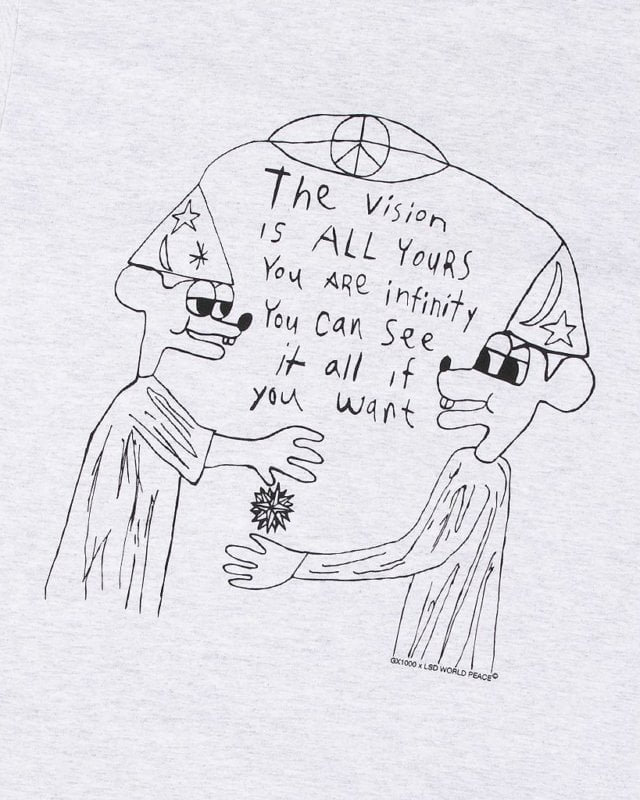 The Vision
IS ALL YOURS
You ARE infinity
You Can See
it all if
you want
GX1000 x LSD WORLD PEACE©